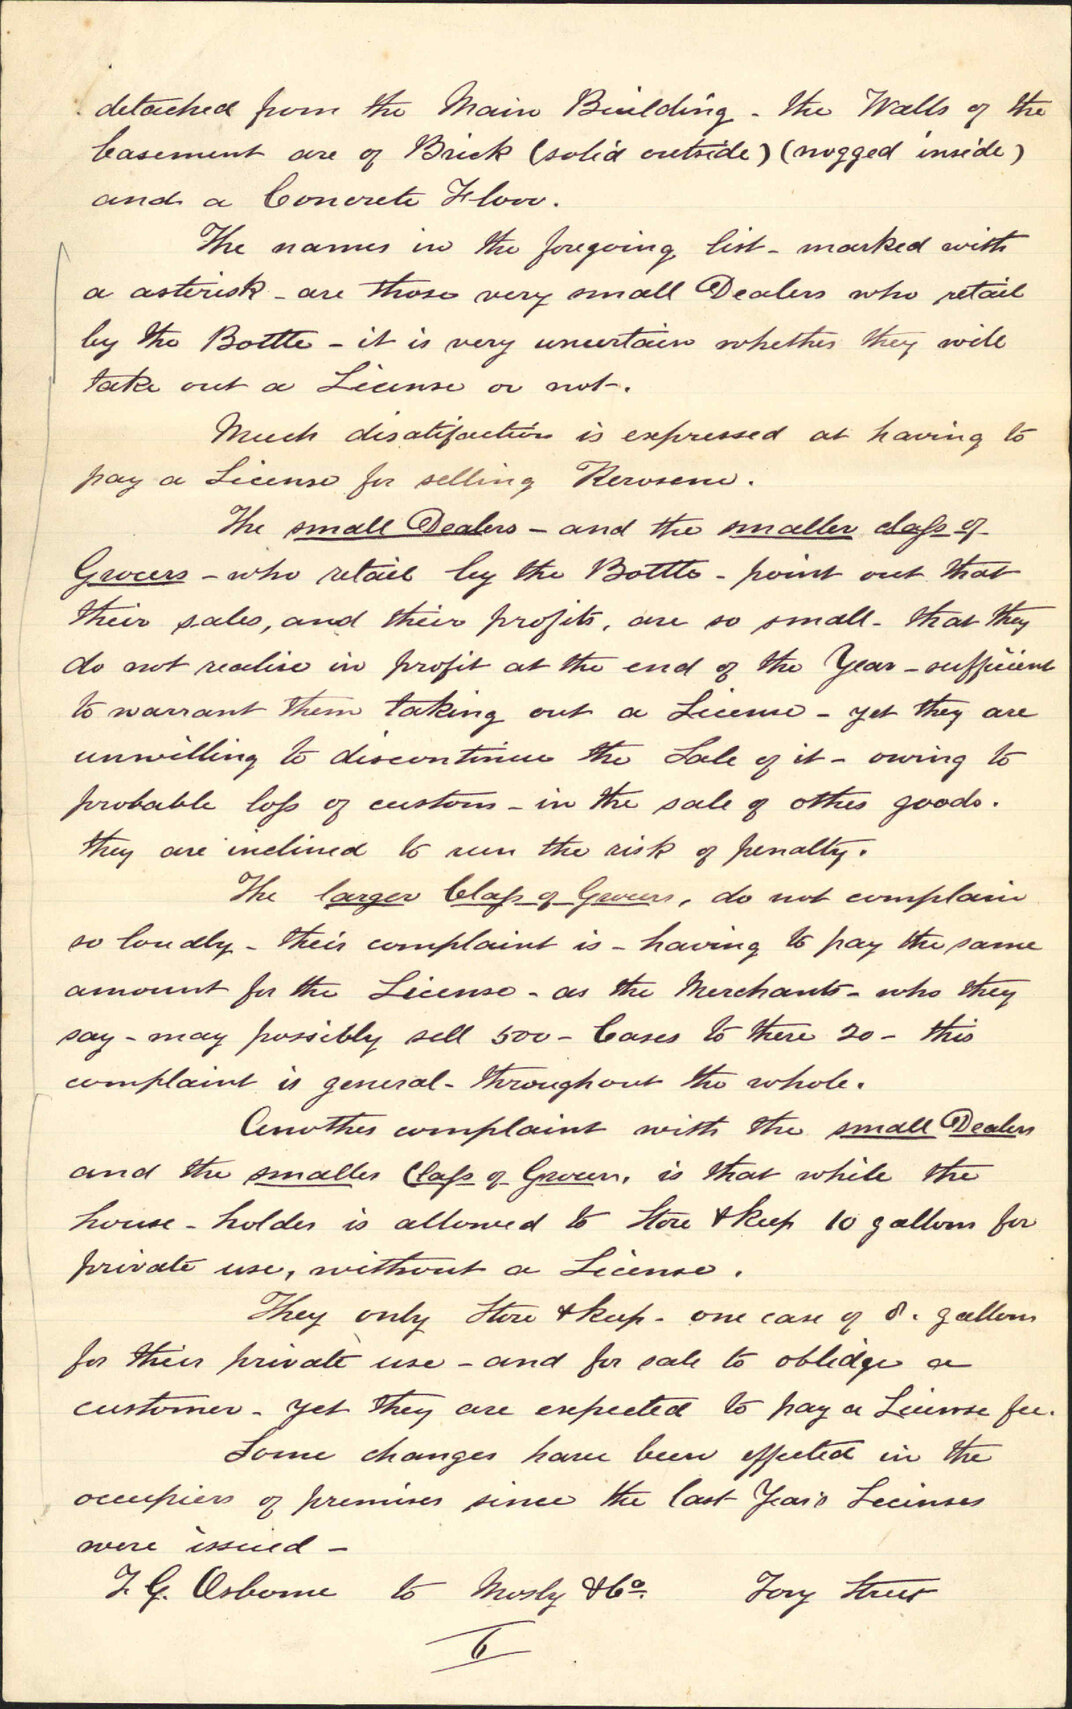 detached from the Main Building - the Walls of the
basement are of Brick (solid outside) (nogged inside)
and a Concrete Floor.
The names in the foregoing list - marked with
a asterisk - are those very small Dealers who retail
by the Bottle - it is very uncertain whether they will
take out a License or not.
Much disatifaction is expressed at having to
pay a License for selling Kerosene.
The small Dealers - and the smaller class of
Grocers - who retail by the Bottle - point out that
their sales, and their profits, are so small - that they
do not realise in profit at the end of the Year - sufficient
to warrant them taking out a License - yet they are
unwilling to discontinue the Sale of it - owing to
probable loss of custom - in the sale of other goods.
they are inclined to run the risk of penalty.
The larger Class of Grocers, do not complain
so loudly - their complaint is - having to pay the same
amount for the License - as the Merchants - who they
say - may possibly sell 500 - Cases to there 20 - this
complaint is general - throughout the whole.
Another complaint with the small Dealers
and the smaller Class of Grocers, is that while the
house - holder is allowed to Store & keep 10 gallons for
private use, without a License.
They only Store & keep - one case of 8. gallons
for their private use - and for sale to oblidge a
customer - yet they are expected to pay a License fee.
Some changes have been effected in the
occupiers of premises since the last Years Licenses
were issued -
T. G. Osborne to Mosly & Co. Tory Street
6